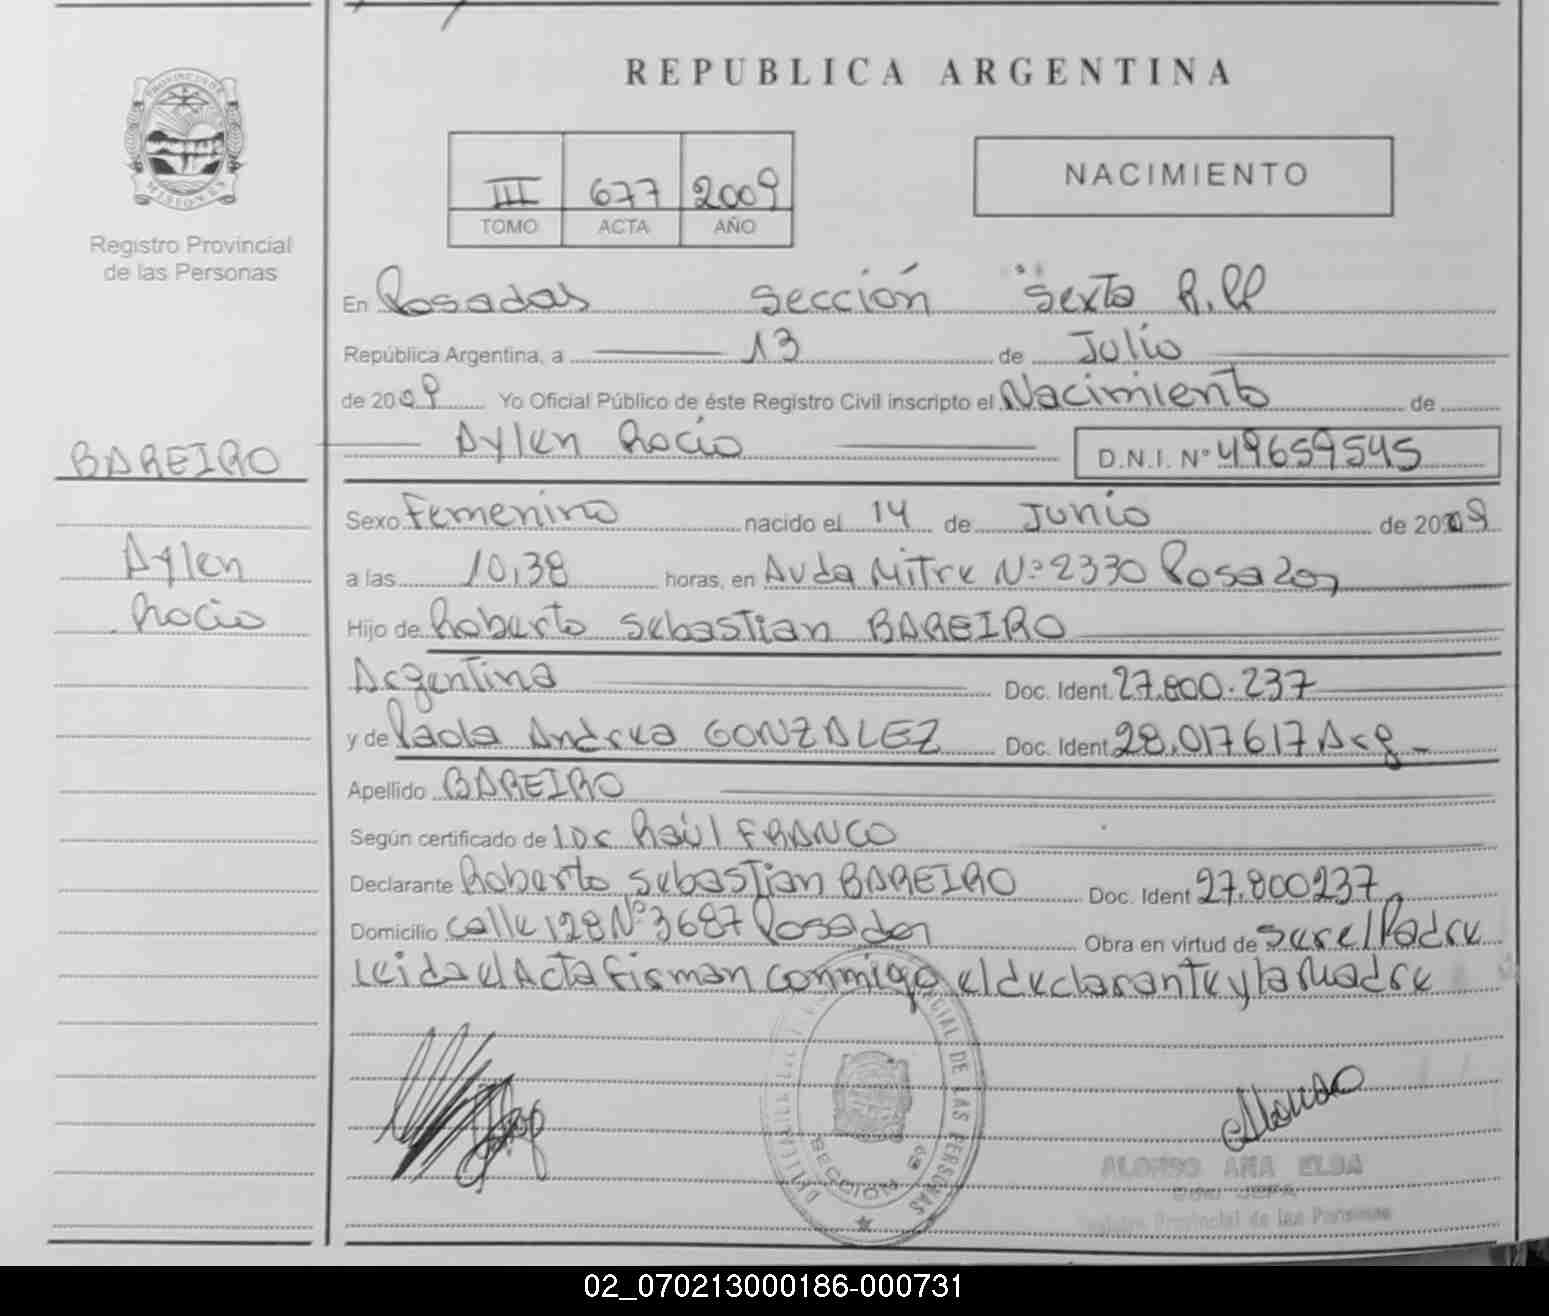 REPUBLICA ARGENTINA
PROVINCIA DE MISIONES
Registro Provincial
de las Personas
III 677 2009
TOMO ACTA AÑO
NACIMIENTO
En Posadas Sección Sexta R.PP
República Argentina, a 13 de Julio
de 2009 Yo Oficial Público de éste Registro Civil inscripto el Nacimiento de
Aylen Rocio D.N.I. Nº 49659545
BAREIRO
Aylen
Rocio
Sexo Femenino nacido el 14 de Junio de 2009
a las 10,38 horas, en Avda Mitre Nº 2330 Posadas
Hijo de Roberto Sebastian BAREIRO
Argentina Doc. Ident. 27.800.237
y de Paola Andrea GONZALEZ Doc. Ident. 28.017617 Arg
Apellido BAREIRO
Según certificado de Raúl FRANCO
Declarante Roberto Sebastian BAREIRO Doc. Ident 27.800237
Domicilio calle 128 Nº 3687 Posadas Obra en virtud de ser el Padre
Leida el Acta firman conmigo el declarante y la Madre
DE LAS PERSONAS
SECCION 6ª
ALONSO ANA ELBA
Registro Provincial de las Personas
02_070213000186-000731